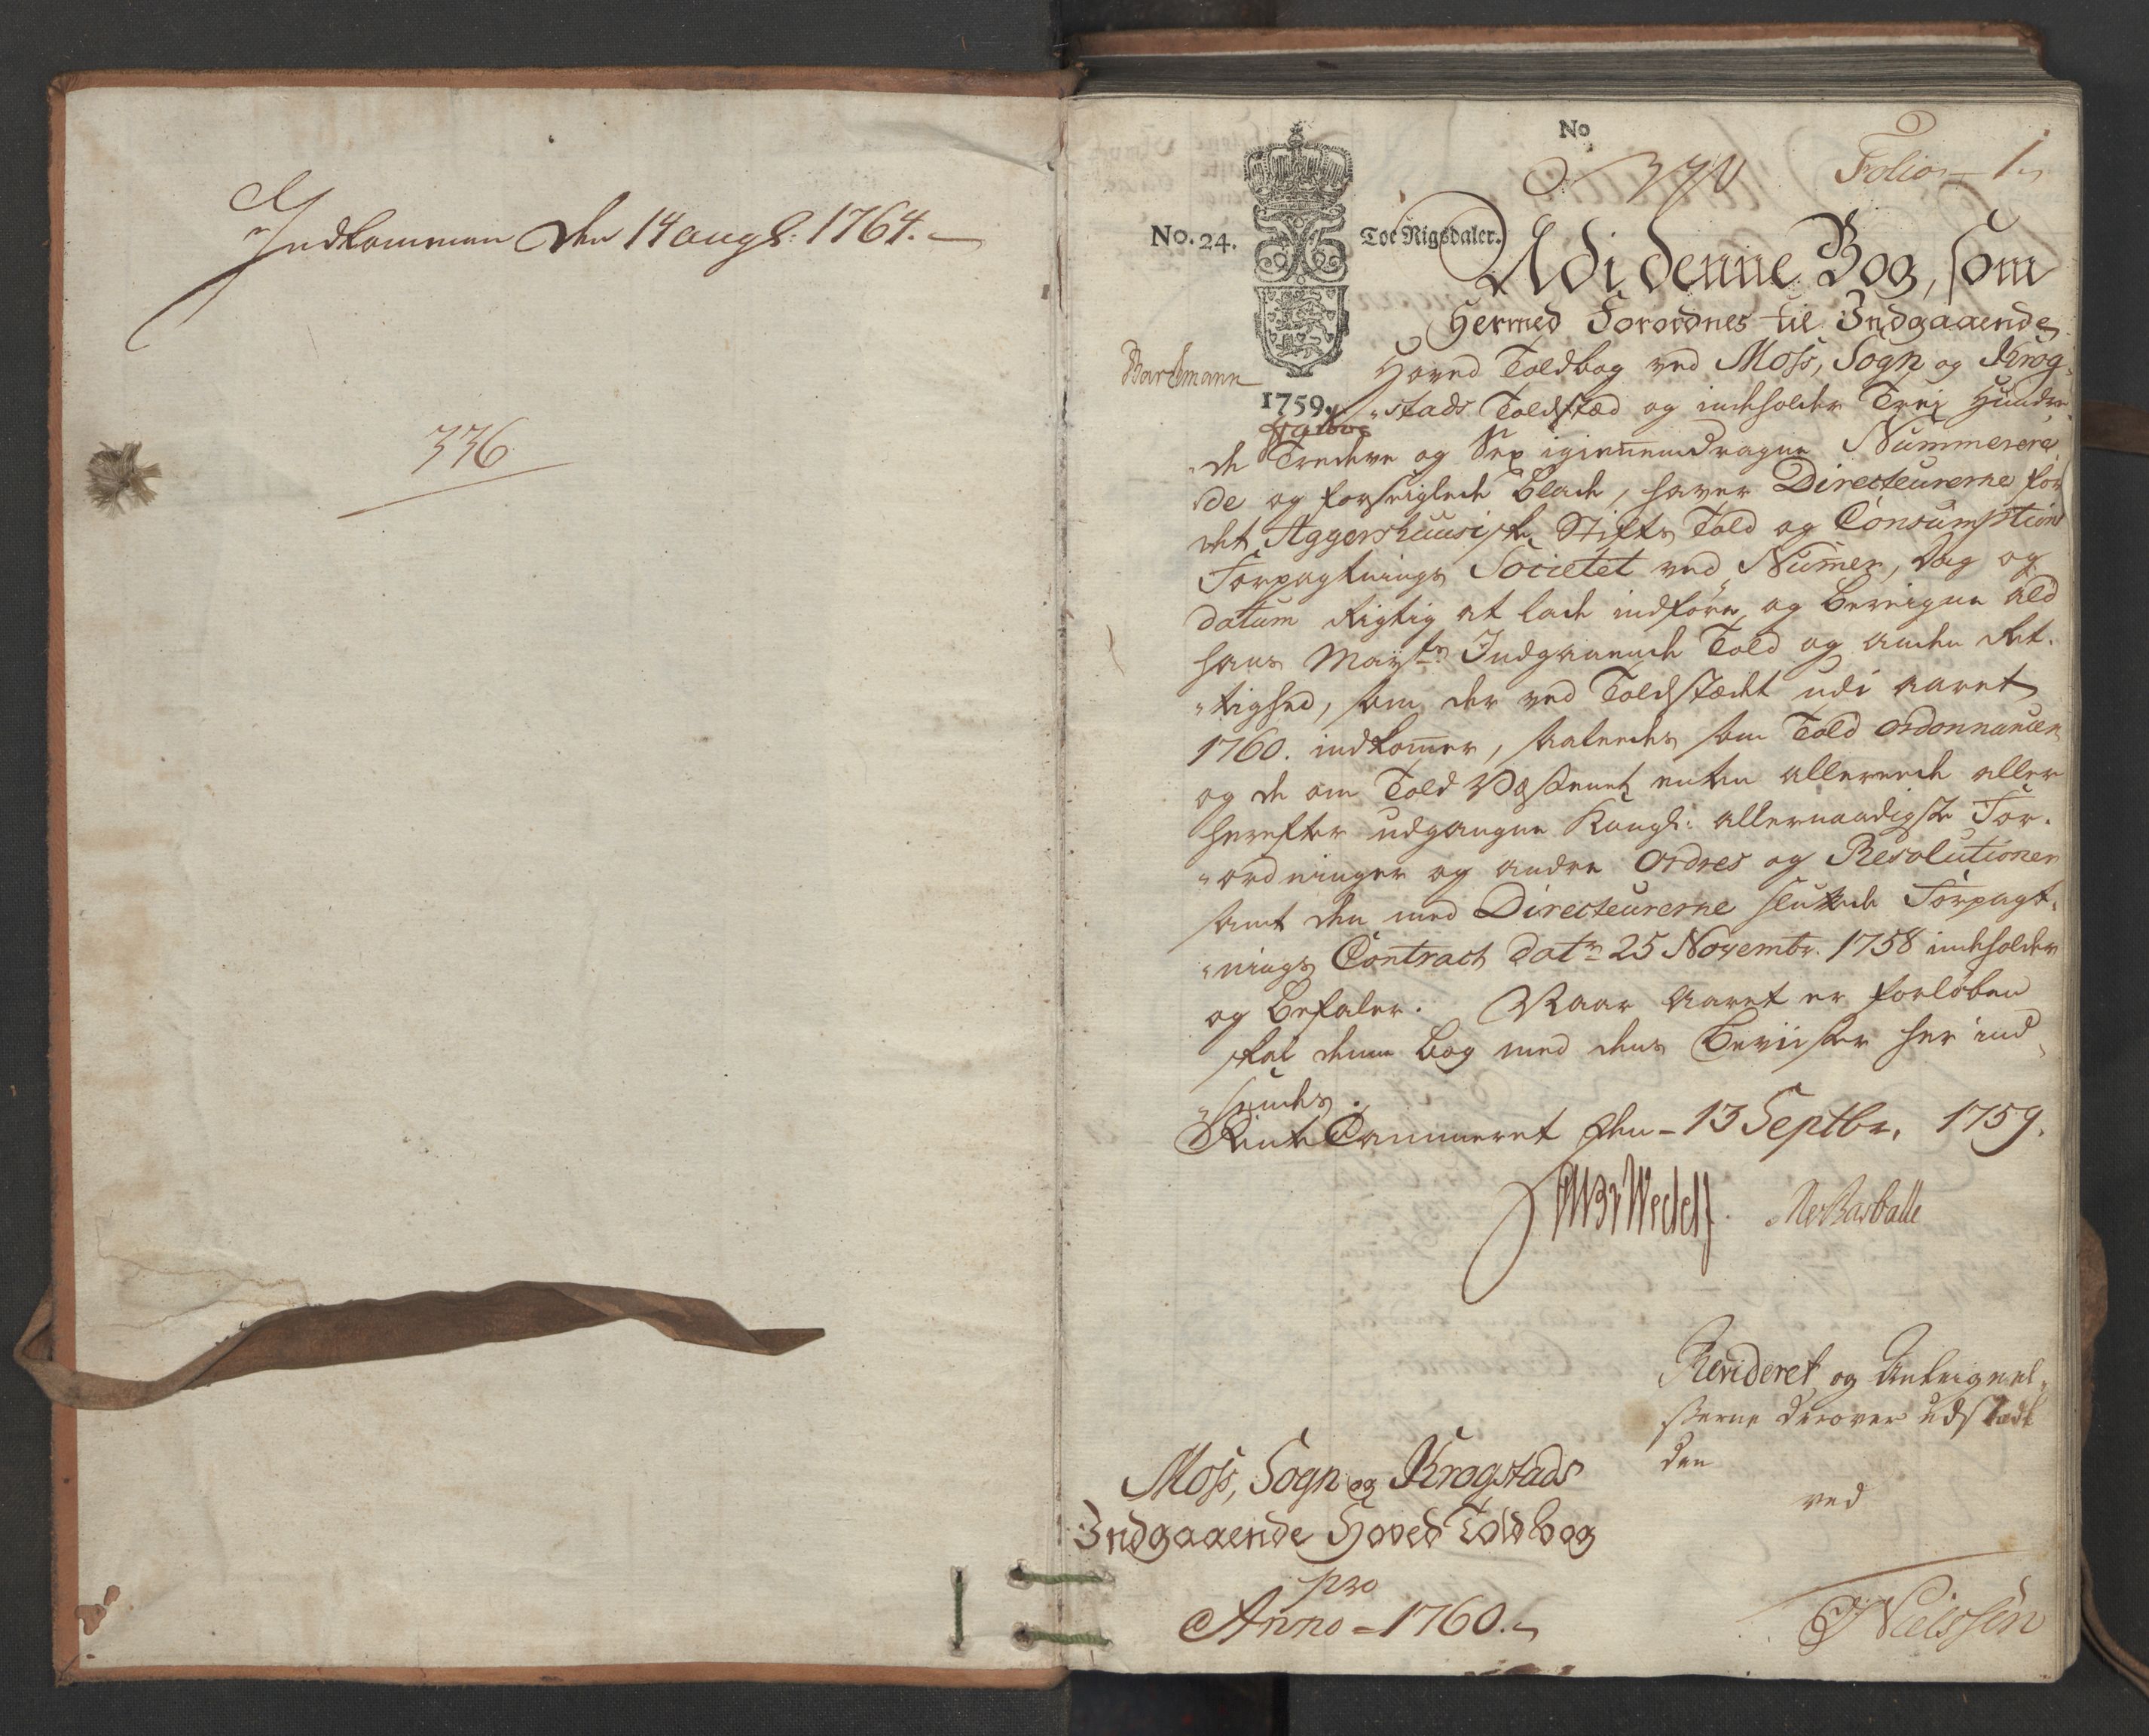 Indkommen den 14 augs: 1764.
336
No
Folio 1
No. 24.
Toe Rigsdaler.
1759.
Bartmann
Udi denne Bog, som
Hermed Forordnes til Indgaaende
Hoved Toldbog ved Moss, Sogn og Krog-
"stads Toldstæd og indeholder Trej Hundre
"de Tredeve og Sex igiennemdragne Nummerere
"de og forseiglede blade, haver Directeurerne for
det Aggershuusiske Stifts Told og Consumptions
Forpagtnings Societet ved Numer, Dag og
datum Rigtig at lade indføre, og bereigne ald
hans Mayts Indgaaende Told og anden Ret-
"tighed, som der ved Toldstædet udi aaret
1760. indkommer, saaledes som Told ordonnancen
og de om Told Væsenet enten allereede eller
herefter udgangne Kongl: allernaadigste For-
"ordninger og andre Ordres og Resolutioner
samt den med Directeurerne sluttede Forpagt-
"nings Contract dat 25 Novembr. 1758 indeholder
og befaler. Naar Aaret er forløben
skal denne bog med dens Beviiser her ind-
"sendes.
Rente Cammeret den 13 Septbr. 1759.
Wedel
Revideret og Anteignel-
serne derover udstædt
den
ved
Moss, Sogn og Krogstads
Indgaaende Hoved Toldbog
pro
Anno 1760.
Nielssen